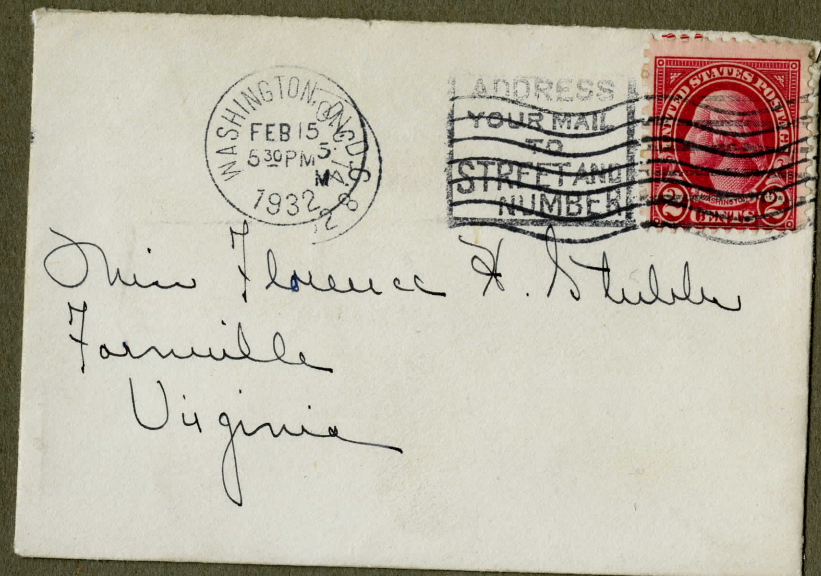 WASHINGTON, D.C.
FEB 15
5 30 PM
1932
ADDRESS
YOUR MAIL
TO
STREET AND
NUMBER
UNITED STATES POSTAGE
WASHINGTON
2 CENTS 2
Miss Florence H. Stubbs
Farmville
Virginia